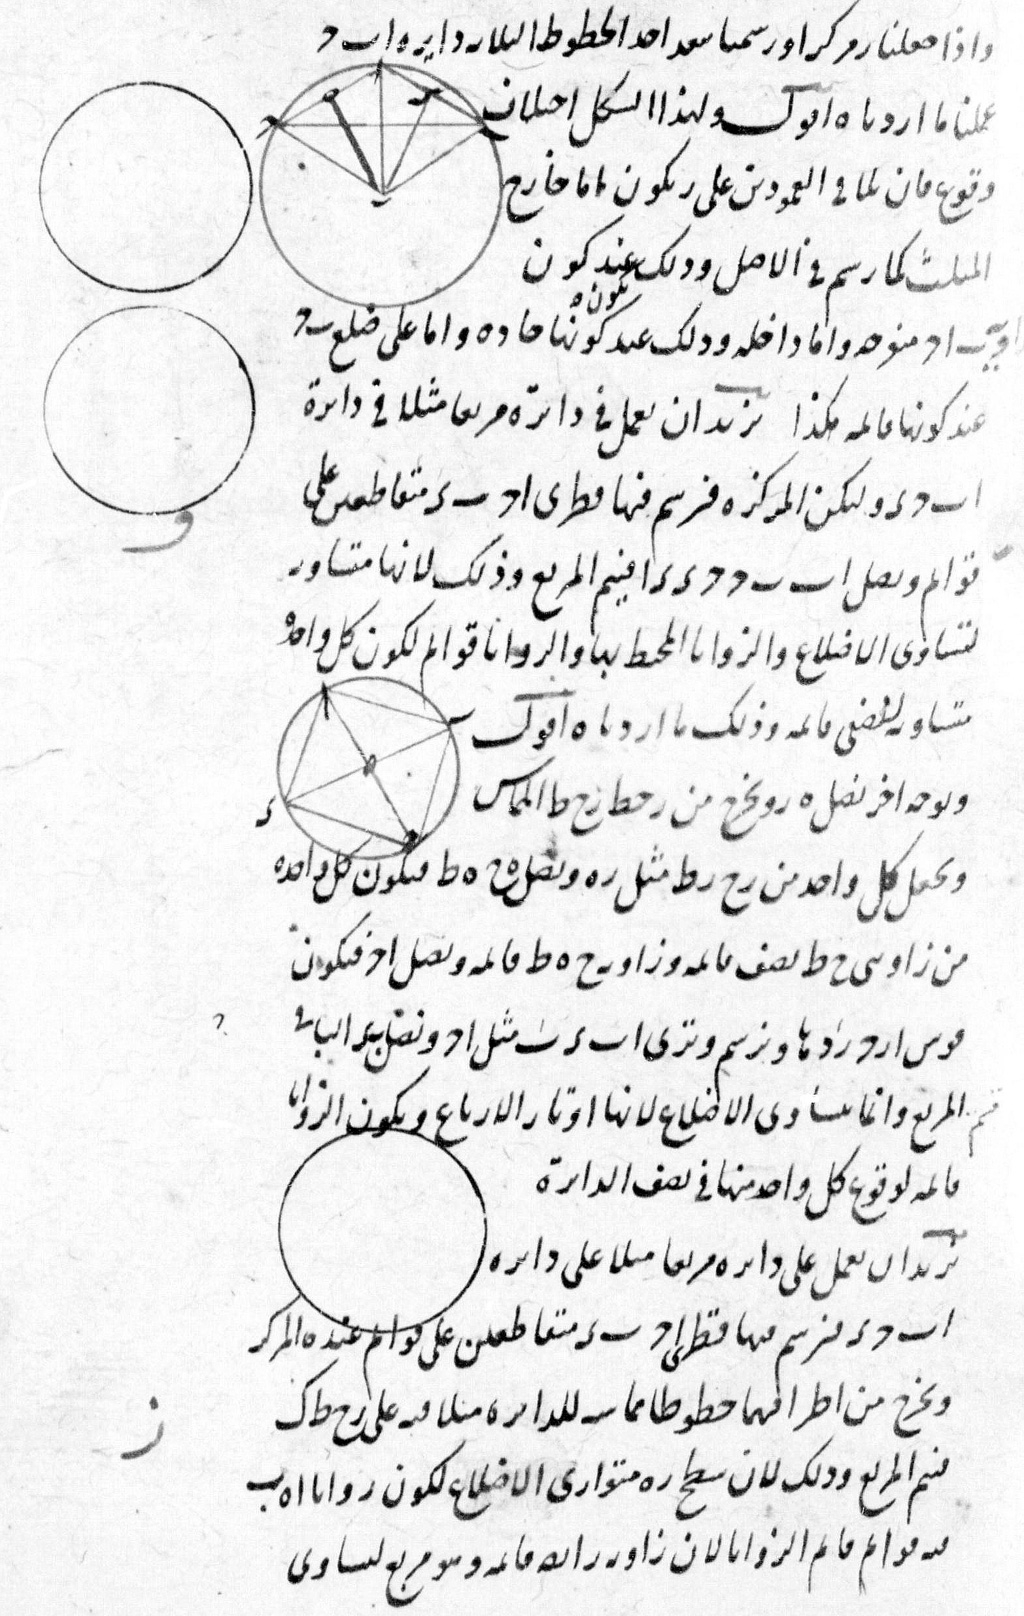 واذا جعلنا ز مركزا ورسمنا ببعد احد الخطوط الثلاث دايره ا ب ح
عملنا ما اردناه اقول ولهذا الشكل اختلاف
وقوع فان تلاقى العمودين على ز يكون اما خارج
المثلث كما رسم فى الاصل وذلك عند كون
يكون
زاوية ب ا ح منفرجه واما داخله وذلك عند كونها حاده واما على ضلع ب ح
عند كونها قائمه هكذا نريد ان نعمل فى دائرة مربعا مثلا فى دائرة
ا ب ح د وليكن المركز ه فنرسم فيها قطرى ا ح ب د متقاطعين على
قوائم ونصل ا ب ب ح ح د د ا فيتم المربع وذلك لانها متساوية
لتساوى الاضلاع والزوايا المحيط بها والزوايا قوائم لكون كل واحده
متساويه لنصفى قائمه وذلك ما اردناه اقول
وبوجه اخر نصل ه ز ونخرج من ز خط ز ح ط المماس
ونجعل كل واحد من ز ح ز ط مثل ز ه ونصل ه ح ه ط فيكون كل واحده
من زاويتى ح ط نصف قائمه وزاوية ح ه ط قائمه ونصل ا ح فيكون
قوس ا ز ح ربعا ونرسم وترى ا ب د ب مثل ا ح ونصل الباقى
فيتم المربع وانما يتساوى الاضلاع لانها اوتار الارباع ويكون الزوايا
قائمه لوقوع كل واحد منها فى نصف الدائرة
نريد ان نعمل على دايره مربعا مثلا على دايره
ا ب ح د فنرسم فيها قطرى ا ح ب د متقاطعين على قوائم عند ه المركز
ونخرج من اطرافهما خطوطا مماسه للدايره متلاقيه على ز ح ط ك
فيتم المربع وذلك لان سطح ز ه متوازى الاضلاع لكون زوايا ا ه ب
فيه قوائم قائم الزوايا لان زاوية ز ايضا قائمه وهو مربع لتساوى
و
ز